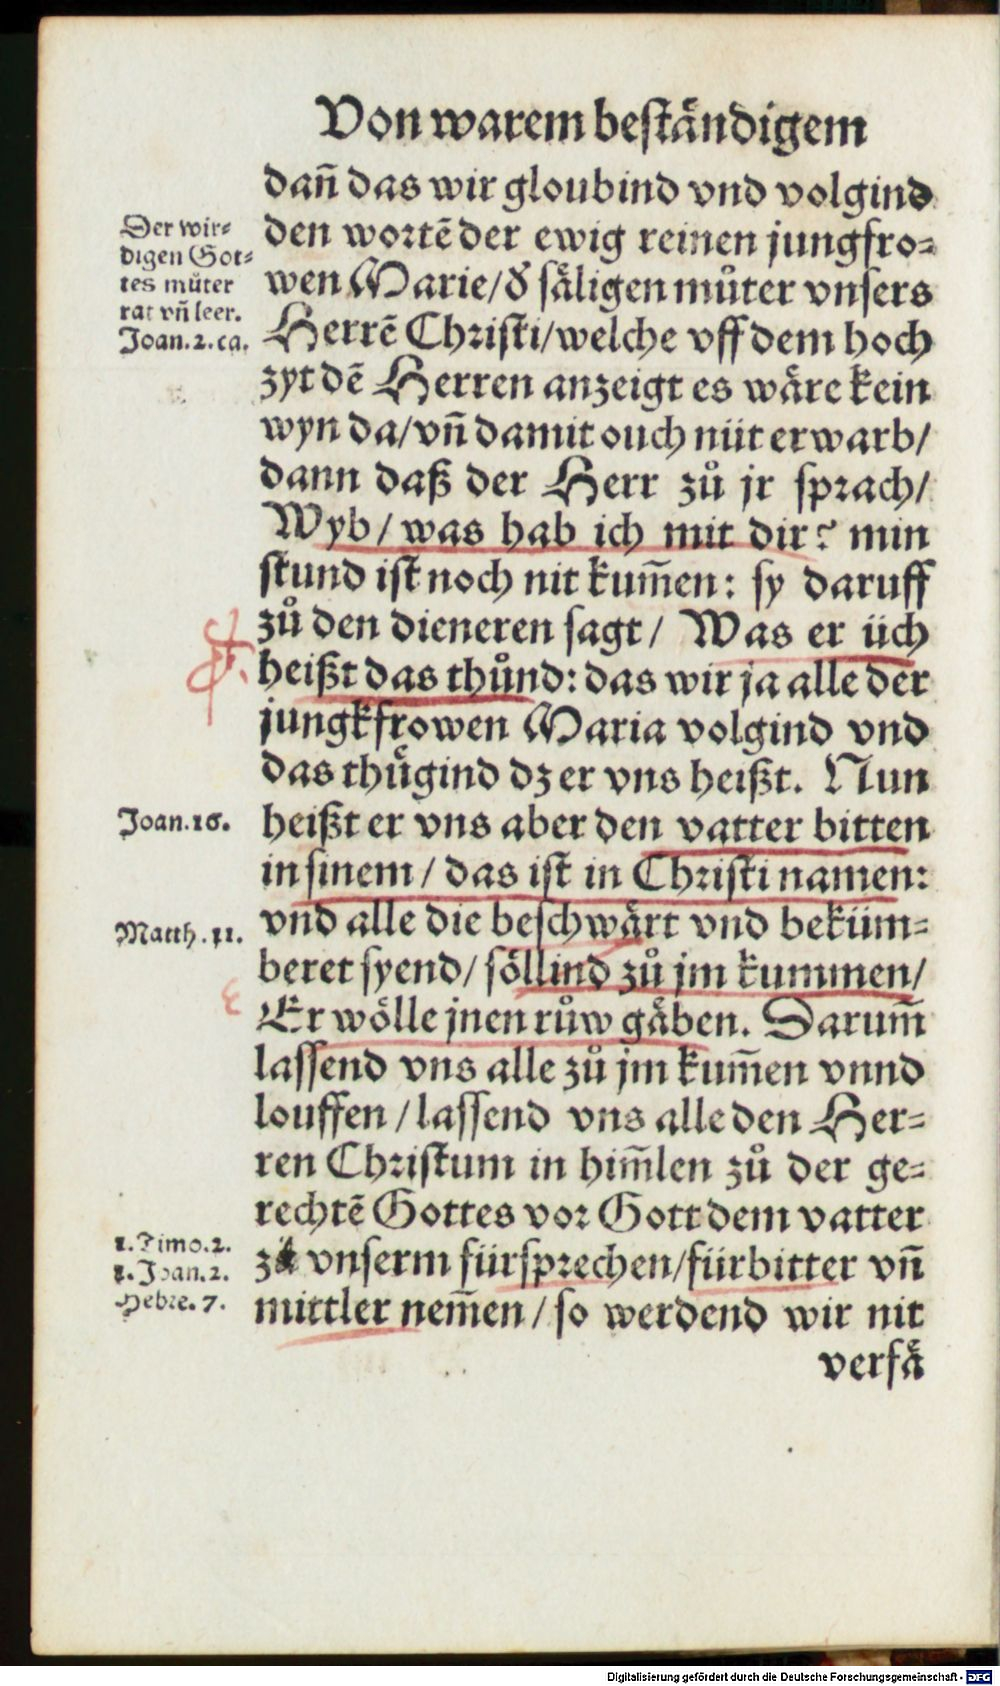 Von warem beständigem
dañ das wir gloubind vnd volgind
den wortẽ der ewig reinen jungfro⸗
wen Marie/ d̕ säligen můter vnsers
Herrẽ Christi/ welche vff dem hoch
zyt dẽ Herren anzeigt es wäre kein
wyn da/ vñ damit ouch nüt erwarb/
dann daß der Herr zů jr sprach/
Wyb/ was hab ich mit dir? min
stund ist noch nit kum̄en: sy daruff
zů den dieneren sagt/ Was er üch
heißt das thůnd: das wir ja alle der
jungkfrowen Maria volgind vnd
das thügind dz er vns heißt. Nun
heißt er vns aber den vatter bitten
in sinem/ das ist in Christi namen:
vnd alle die beschwärt vnd beküm⸗
beret syend/ söllind zů jm kummen/
Er wölle jnen růw gäben. Darum̄
lassend vns alle zů jm kum̄en vnnd
louffen/ lassend vns alle den Her⸗
ren Christum in him̄len zů der ge⸗
rechtẽ Gottes vor Gott dem vatter
zů vnserm fürsprechen/ fürbitter vñ
mittler nem̄en/ so werdend wir nit
verfä
Der wir⸗
digen Got⸗
tes můter
rat vñ leer.
Joan. 2. ca.
Joan. 16.
Matth. 11.
1. Timo. 2.
1. Joan. 2.
Hebre. 7.
Digitalisierung gefördert durch die Deutsche Forschungsgemeinschaft - DFG